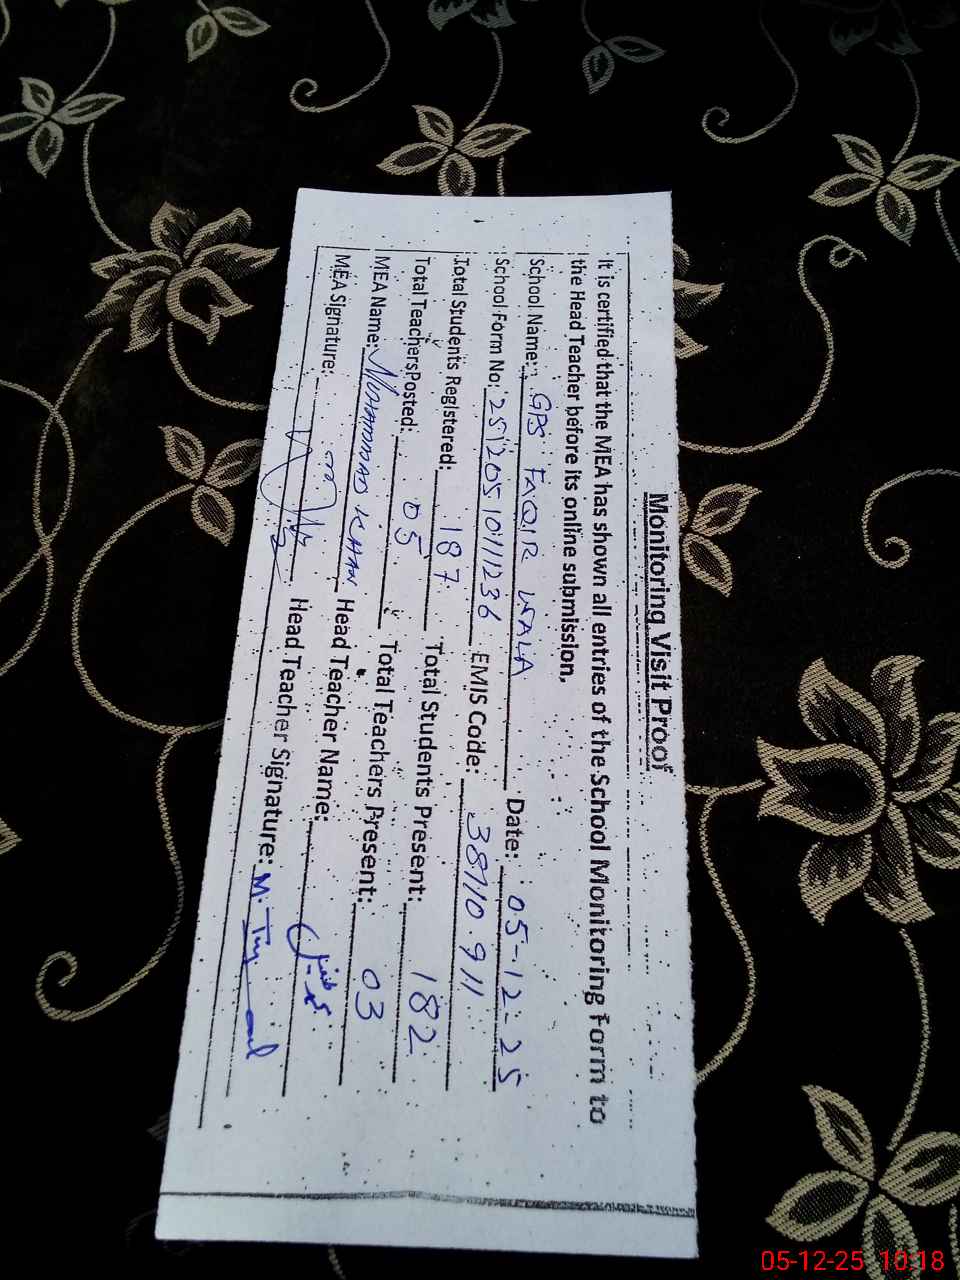 Monitoring Visit Proof
It is certified that the MEA has shown all entries of the School Monitoring Form to
the Head Teacher before its online submission.
School Name: GPS FAQIR WALA Date: 05-12-25
School Form No: 251205101111236 EMIS Code: 38110911
Total Students Registered: 187 Total Students Present: 182
Total Teachers Posted: 05 Total Teachers Present: 03
MEA Name: MOHAMMAD KHAN Head Teacher Name:
MEA Signature: Head Teacher Signature:
05-12-25 10:18